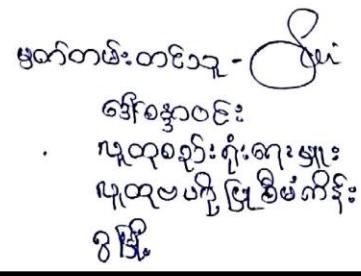 မှတ်တမ်းတင်သူ -
ဒေါ်စန္ဒာဝင်း
လူထုစည်းရုံးရေးမှူး
လူထုဗဟိုပြုစီမံကိန်း
ခွဲမြို့